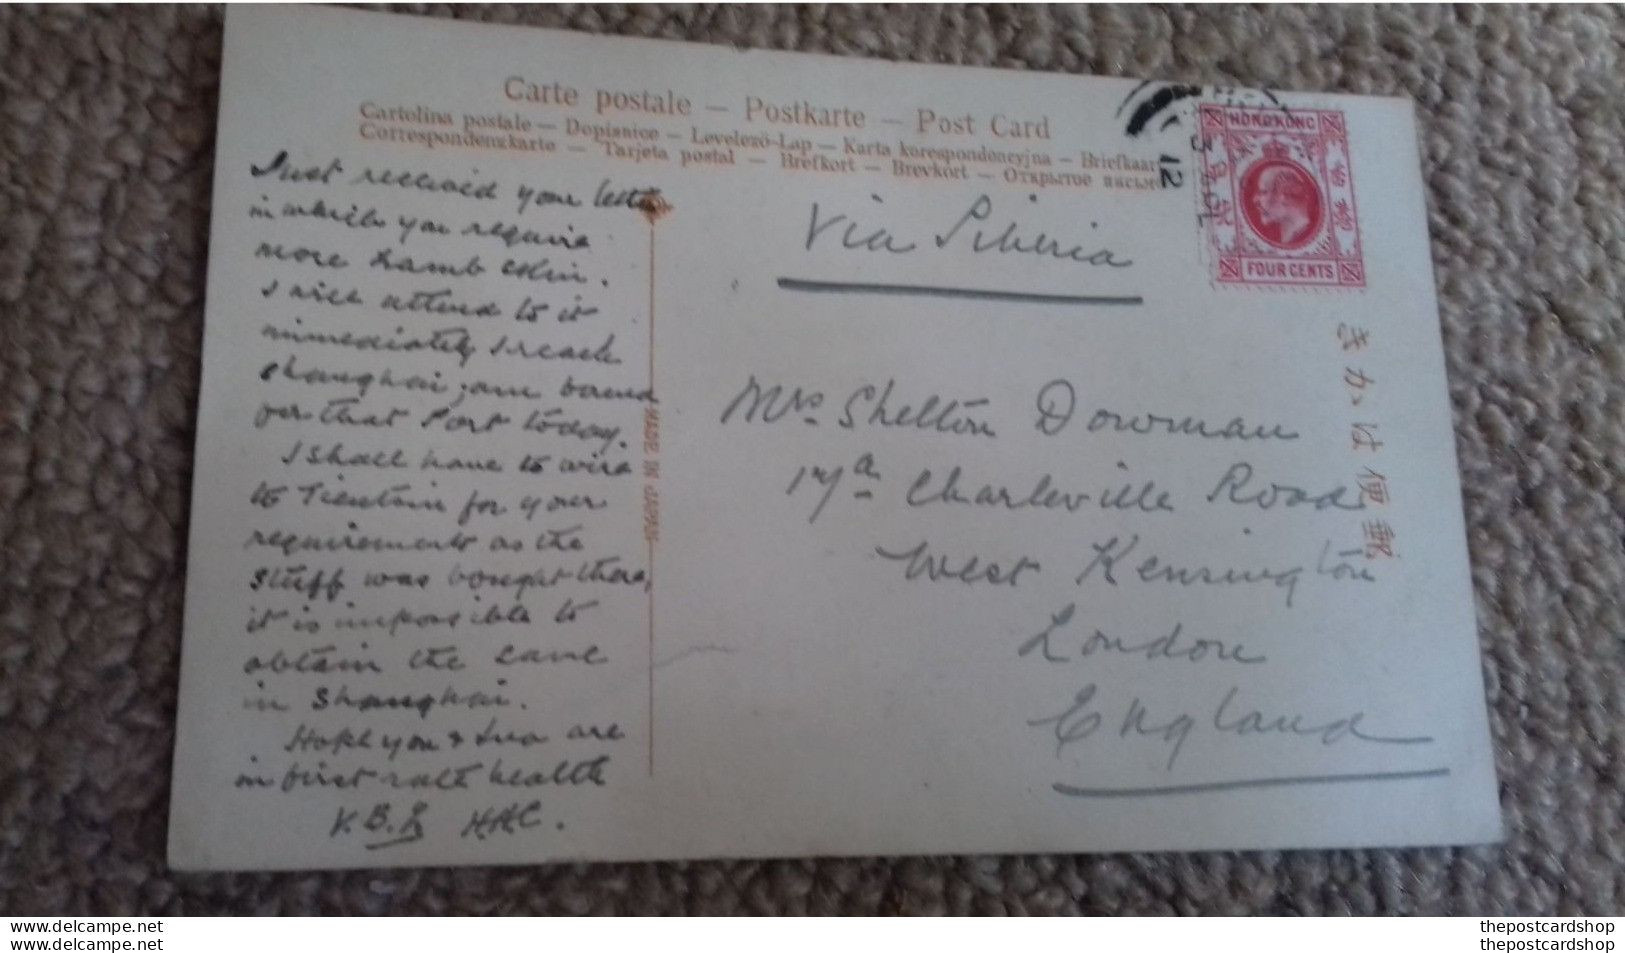 Carte postale — Postkarte — Post Card
Cartolina postale — Dopisnice — Levelező-Lap — Karta korespondencyjna — Briefkaart
Correspondenzkarte — Tarjeta postal — Brefkort — Brevkort — Открытое письмо
Just received your letter
in which you require
more Lamb skin.
I will attend to it
immediately I reach
Shanghai; am bound
for that Port today.
I shall have to wire
to Tientsin for your
requirements as the
stuff was bought there,
it is impossible to
obtain the same
in Shanghai.
Hope you & are
in first rate health
H.H.C.
MADE IN JAPAN
Via Siberia
HONGKONG
香港
FOUR CENTS
12
きかは便郵
Mrs Shelton Dowman
17a Charleville Road
West Kensington
London
England
delcampe.net
delcampe.net
thepostcardshop
thepostcardshop